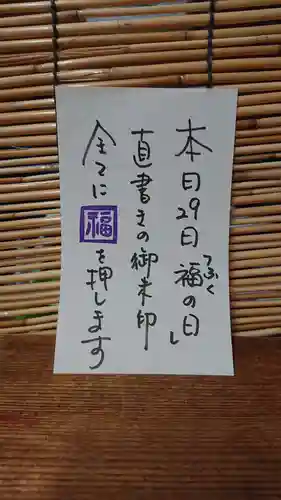 本日29日福の日
つふく
直書きの御朱印
全てに福を押します